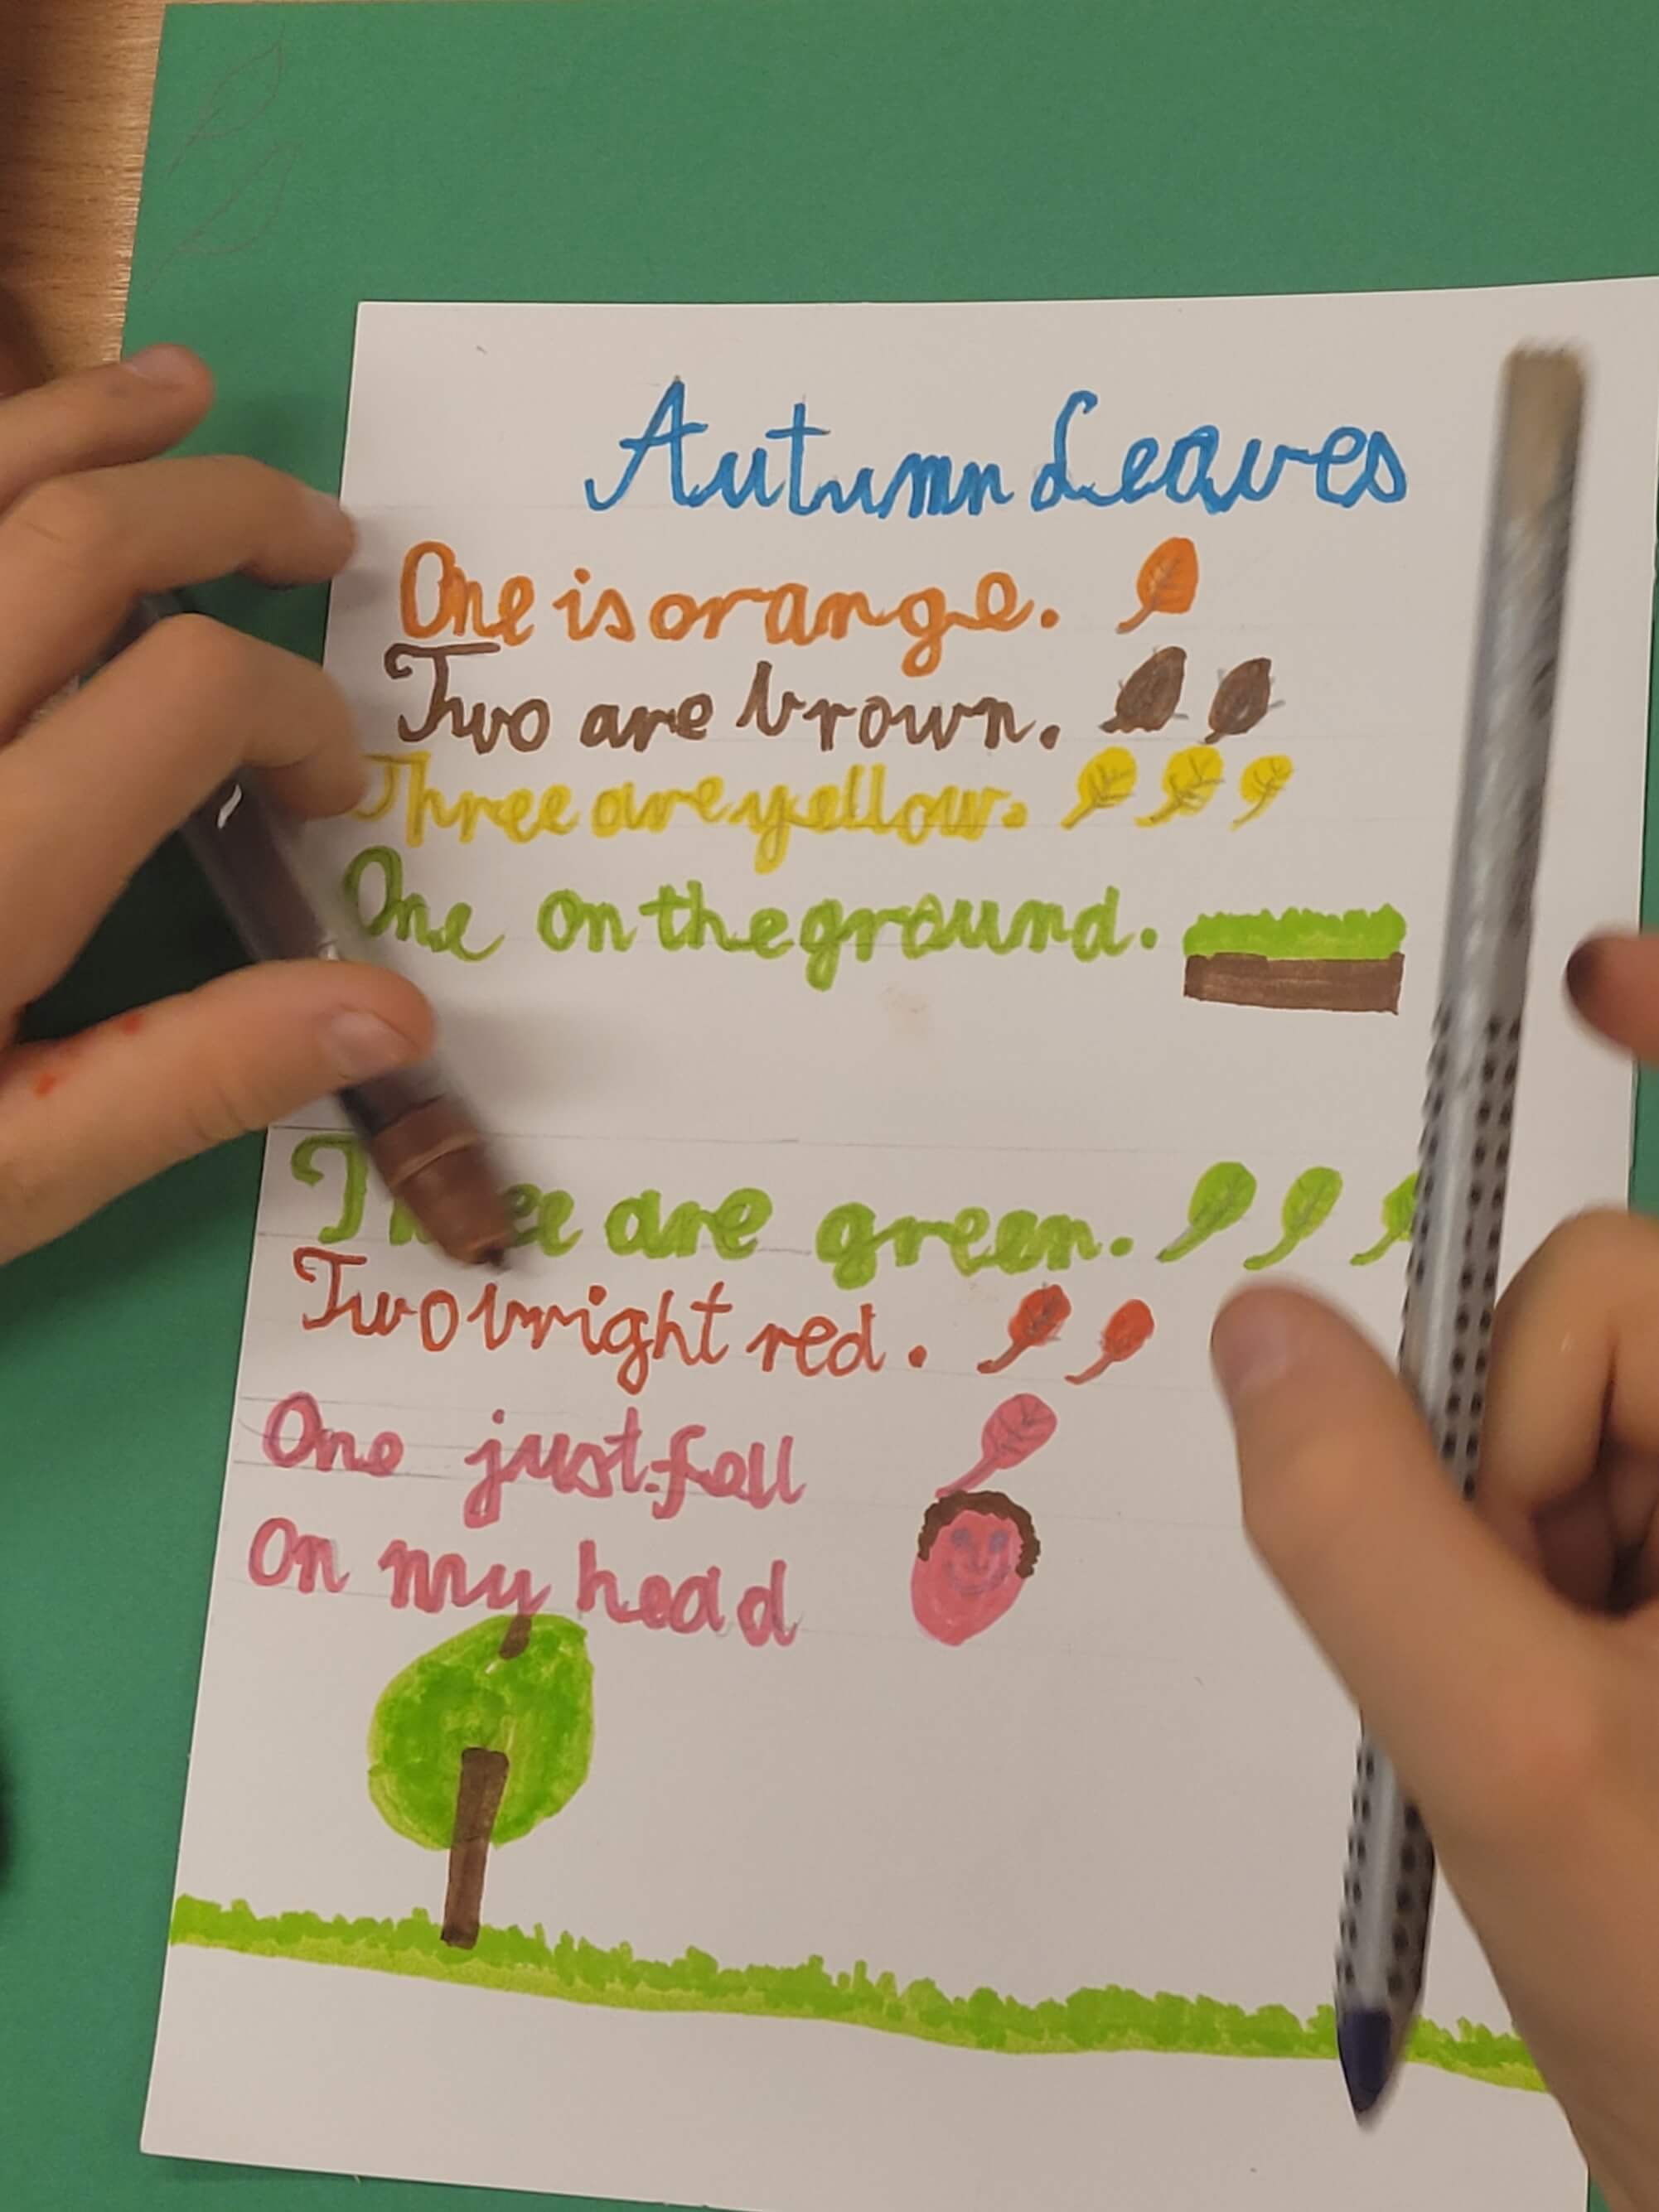 Autumn Leaves
One is orange.
Two are brown.
Three are yellow.
One on the ground.
Three are green.
Two bright red.
One just fell
On my head